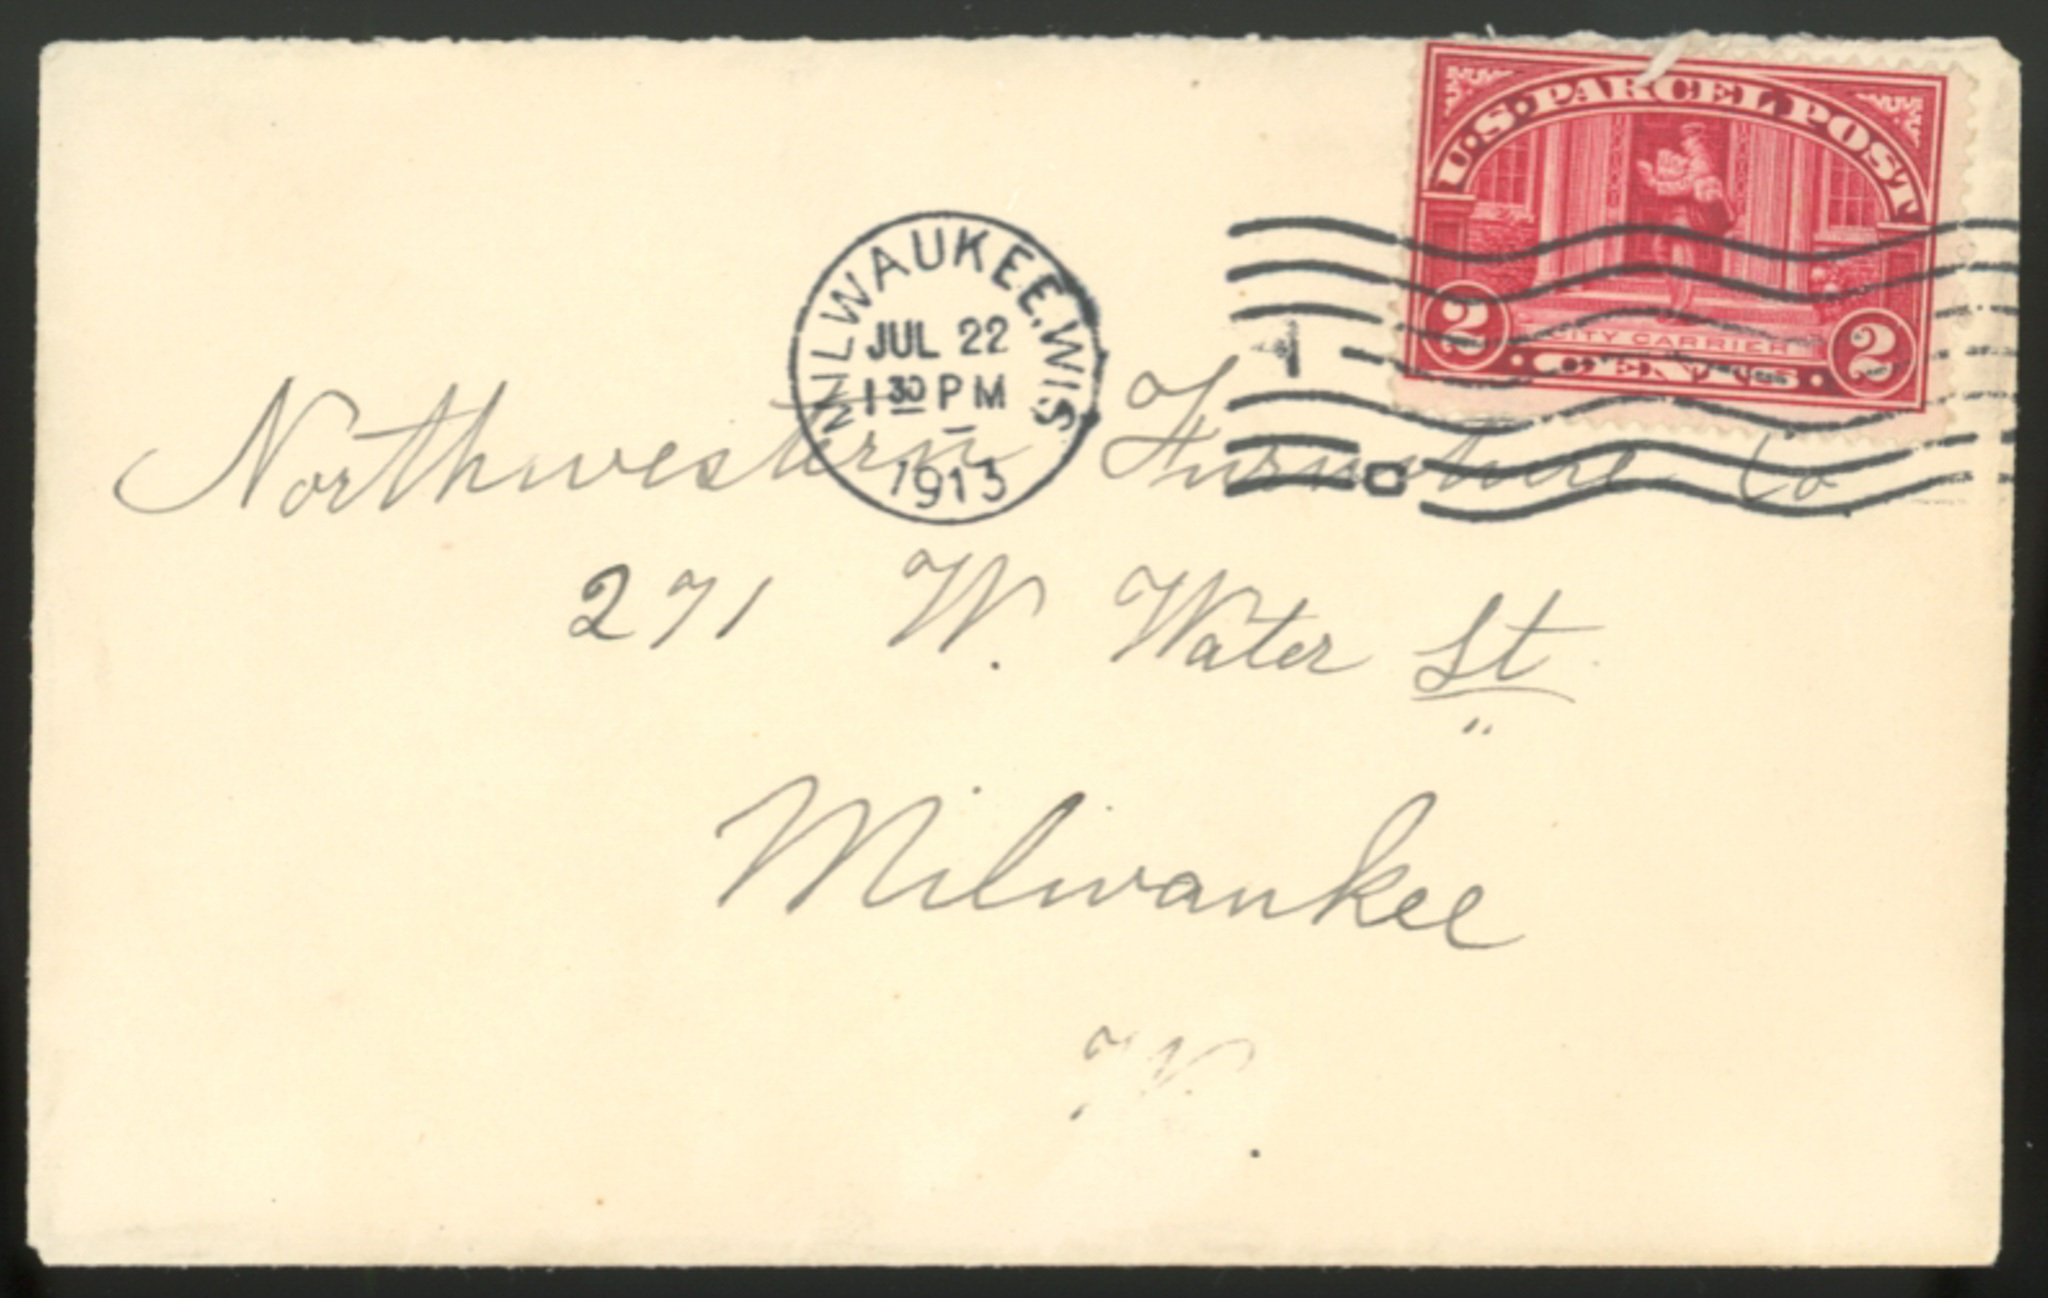 U.S. PARCEL POST
2 CITY CARRIER 2
CENTS
MILWAUKEE, WIS.
JUL 22
1 30 PM
1913
Northwestern Furniture Co
271 W. Water St
Milwaukee
W.